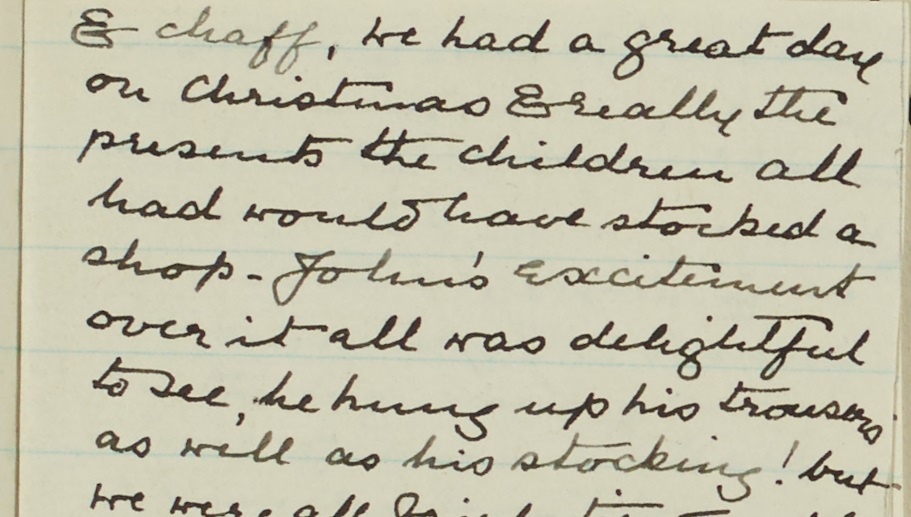 & chaff, we had a great day
on Christmas & really the
presents the children all
had would have stocked a
shop - John's excitement
over it all was delightful
to see, he hung up his trousers
as well as his stocking! but
we were all